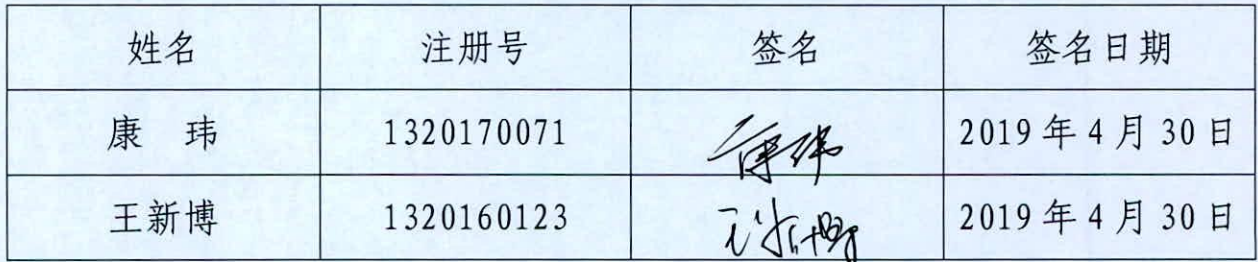 姓名 注册号 签名 签名日期
康 玮 1320170071 康玮 2019年4月30日
王新博 1320160123 王新博 2019年4月30日